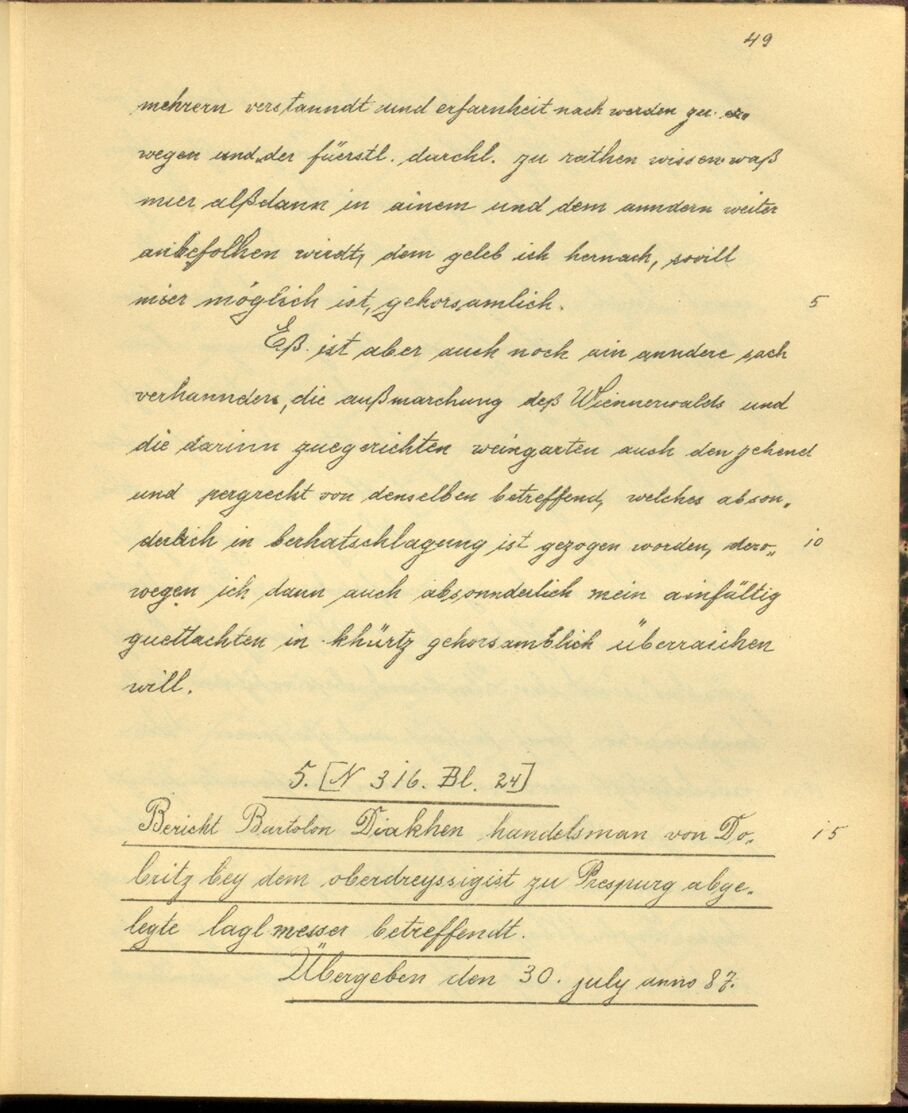 49
mehrern verstanndt unnd erfarnheit nach werden zu er„
wegen und der füerstl. durchl. zu rathen wissen waß
mier alßdann in ainem und dem anndern weiter
anbefolhen wirdt, dem geleb ich hernach, sovill
mier möglich ist, gehorsamlich. 5
Eß ist aber auch noch ain anndere sach
verhannden, die außmarchung deß Wiennerwalds und
die darinn zuegerichten weingarten auch den zehend
und pergrecht von denselben betreffend, welches abson„
derlich in berhatschlagung ist gezogen worden, dero„ 10
wegen ich dann auch absonnderlich mein ainfältig
guettachten in khürtz gehorsamblich überraichen
will.
5. [N 316. Bl. 24]
Bericht Bartolon Diakhen handelsman von Do„ 15
britz bey dem oberdreyssigist zu Prespurg abge„
legte lagl messer betreffendt.
Übergeben den 30. july anno 87.